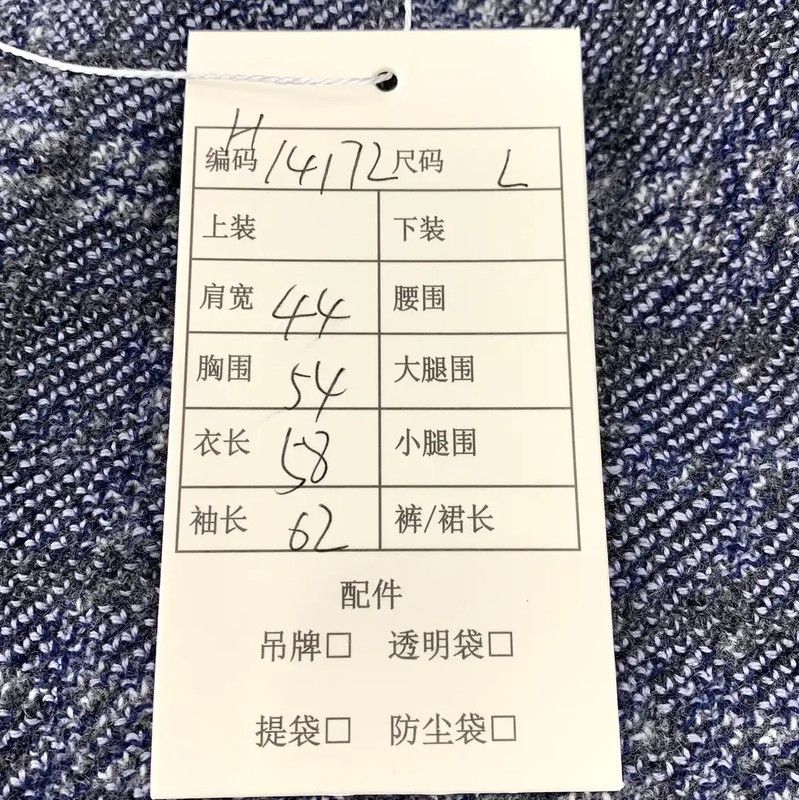 H
编码 14172 尺码 L
上装 下装
肩宽 44 腰围
胸围 54 大腿围
衣长 58 小腿围
袖长 62 裤/裙长
配件
吊牌□ 透明袋□
提袋□ 防尘袋□